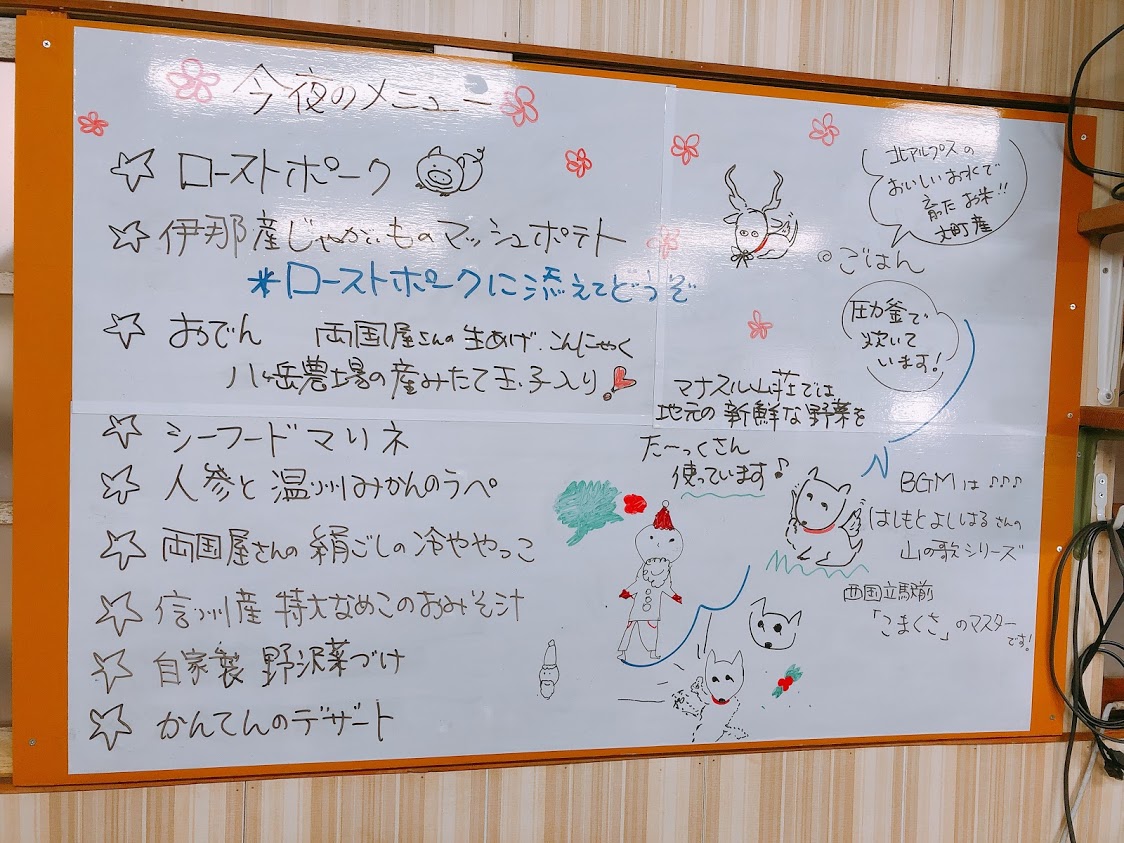 今夜のメニュー
☆ ローストポーク
☆ 伊那産じゃがいものマッシュポテト
＊ローストポークに添えてどうぞ
☆ おでん 両国屋さんの生あげ、こんにゃく
八ヶ岳農場の産みたて玉子入り
☆ シーフードマリネ
☆ 人参と温州みかんのラペ
☆ 両国屋さんの絹ごしの冷ややっこ
☆ 信州産 特大なめこのおみそ汁
☆ 自家製 野沢菜づけ
☆ かんてんのデザート
北アルプスの
おいしいお水で
育ったお米!!
大町産
◎ごはん
圧力釜で
炊いて
います!
マナスル山荘では
地元の新鮮な野菜を
た〜っくさん
使っています♪
BGMは♪♪♪
はしもとよしはるさんの
山の歌シリーズ
西国立駅前
「こまくさ」のマスター
です!